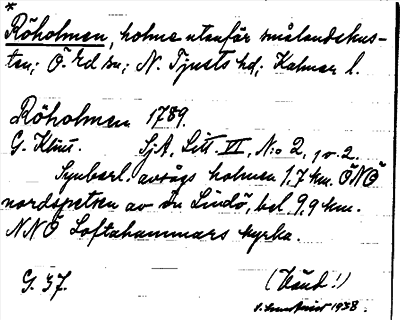 *
Röholmen, holme utanför smålandskus-
ten; Ö. Ed sn; N. Tjusts hd; Kalmar l.
Röholmen 1789.
G. Klint. SjA. Litt. VI, N:o 2, 1 o. 2.
Synbarl. avsågs holmen 1,7 km. ÖNÖ
nordspetsen av ön Lindö, bel. 9,9 km.
NNÖ Loftahammars kyrka.
G. 37. (Vänd!)
1938.